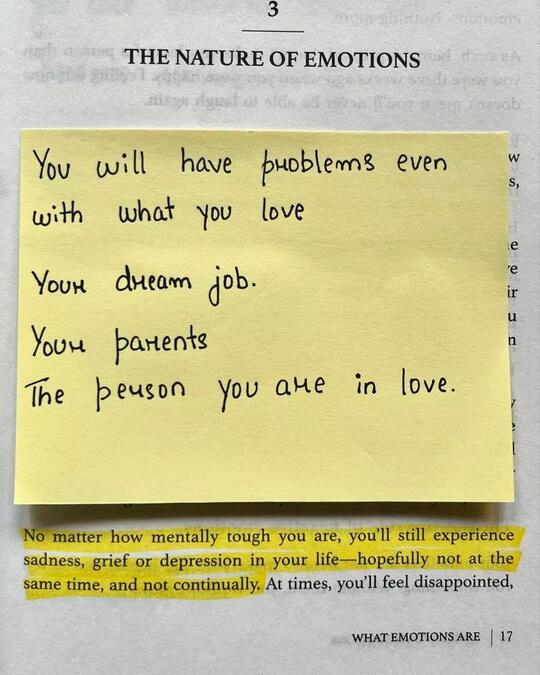 3
THE NATURE OF EMOTIONS
You will have problems even
with what you love
Your dream job.
Your parents
The person you are in love.
No matter how mentally tough you are, you'll still experience
sadness, grief or depression in your life—hopefully not at the
same time, and not continually. At times, you'll feel disappointed,
WHAT EMOTIONS ARE | 17